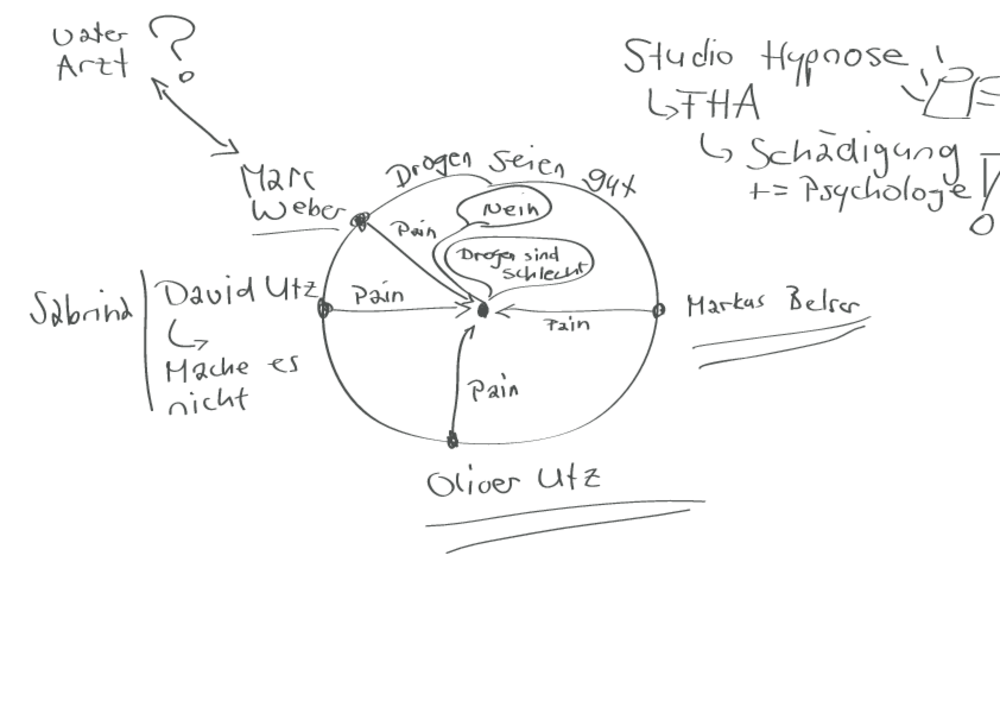 Vater
Arzt ?
Studio Hypnose
↳ FHA
↳ Schädigung
+= Psychologe !
Marc
Weber
Drogen seien gut
Nein
Drogen sind
schlecht
Pain
Sabrina
David Utz
↳
Mache es
nicht
Pain
Pain
Markus Belser
Pain
Oliver Utz